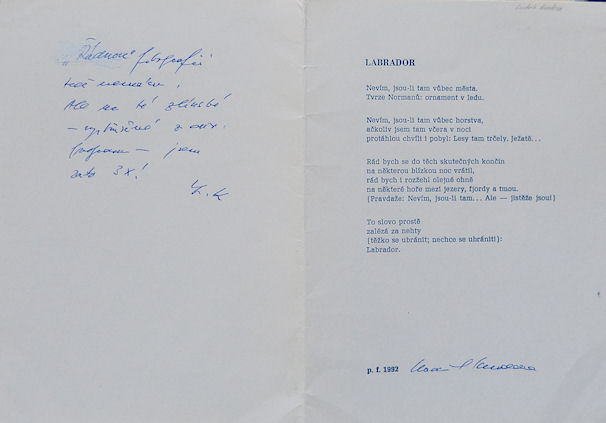 „Řádnou" fotografii
teď nemám.
Ale na té zlínské
— vypůjčené z
program — jsem
zato 3x!
L. K
LABRADOR
Nevím, jsou-li tam vůbec města.
Tvrze Normanů: ornament v ledu.
Nevím, jsou-li tam vůbec horstva,
ačkoliv jsem tam včera v noci
protáhlou chvíli i pobyl: Lesy tam trčely. Ježatě...
Rád bych se do těch skutečných končin
na některou blízkou noc vrátil,
rád bych i rozžehl olejné ohně
na některé hoře mezi jezery, fjordy a tmou.
(Pravdaže: Nevím, jsou-li tam... Ale — jistěže jsou!)
To slovo prostě
zalézá za nehty
(těžko se ubránit; nechce se ubránit!):
Labrador.
p. f. 1992